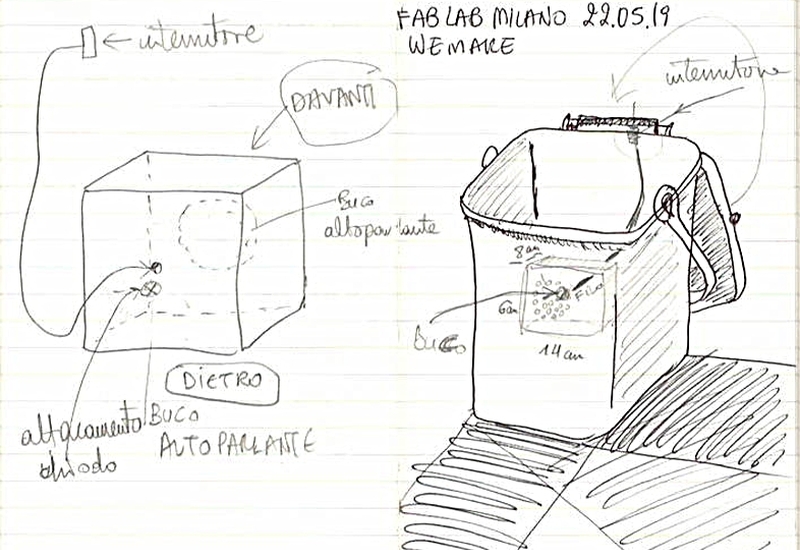 interruttore
DAVANTI
Buco
altoparlante
DIETRO
BUCO
ALTOPARLANTE
chiodo
FAB LAB MILANO 22.05.19
WEMAKE
interruttore
8cm
FILO
6cm
14cm
Buco